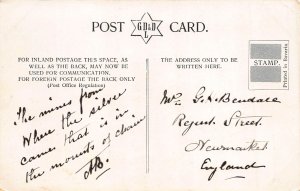 POST G.D&D L CARD.
FOR INLAND POSTAGE THIS SPACE, AS
WELL AS THE BACK, MAY NOW BE
USED FOR COMMUNICATION.
FOR FOREIGN POSTAGE THE BACK ONLY
(Post Office Regulation)
The mines from
where the silver
came that is in
the mounts of chain
AB.
THE ADDRESS ONLY TO BE
WRITTEN HERE.
STAMP.
Printed in Bavaria
G. A. Bendall
Regent Street.
Newmarket
England